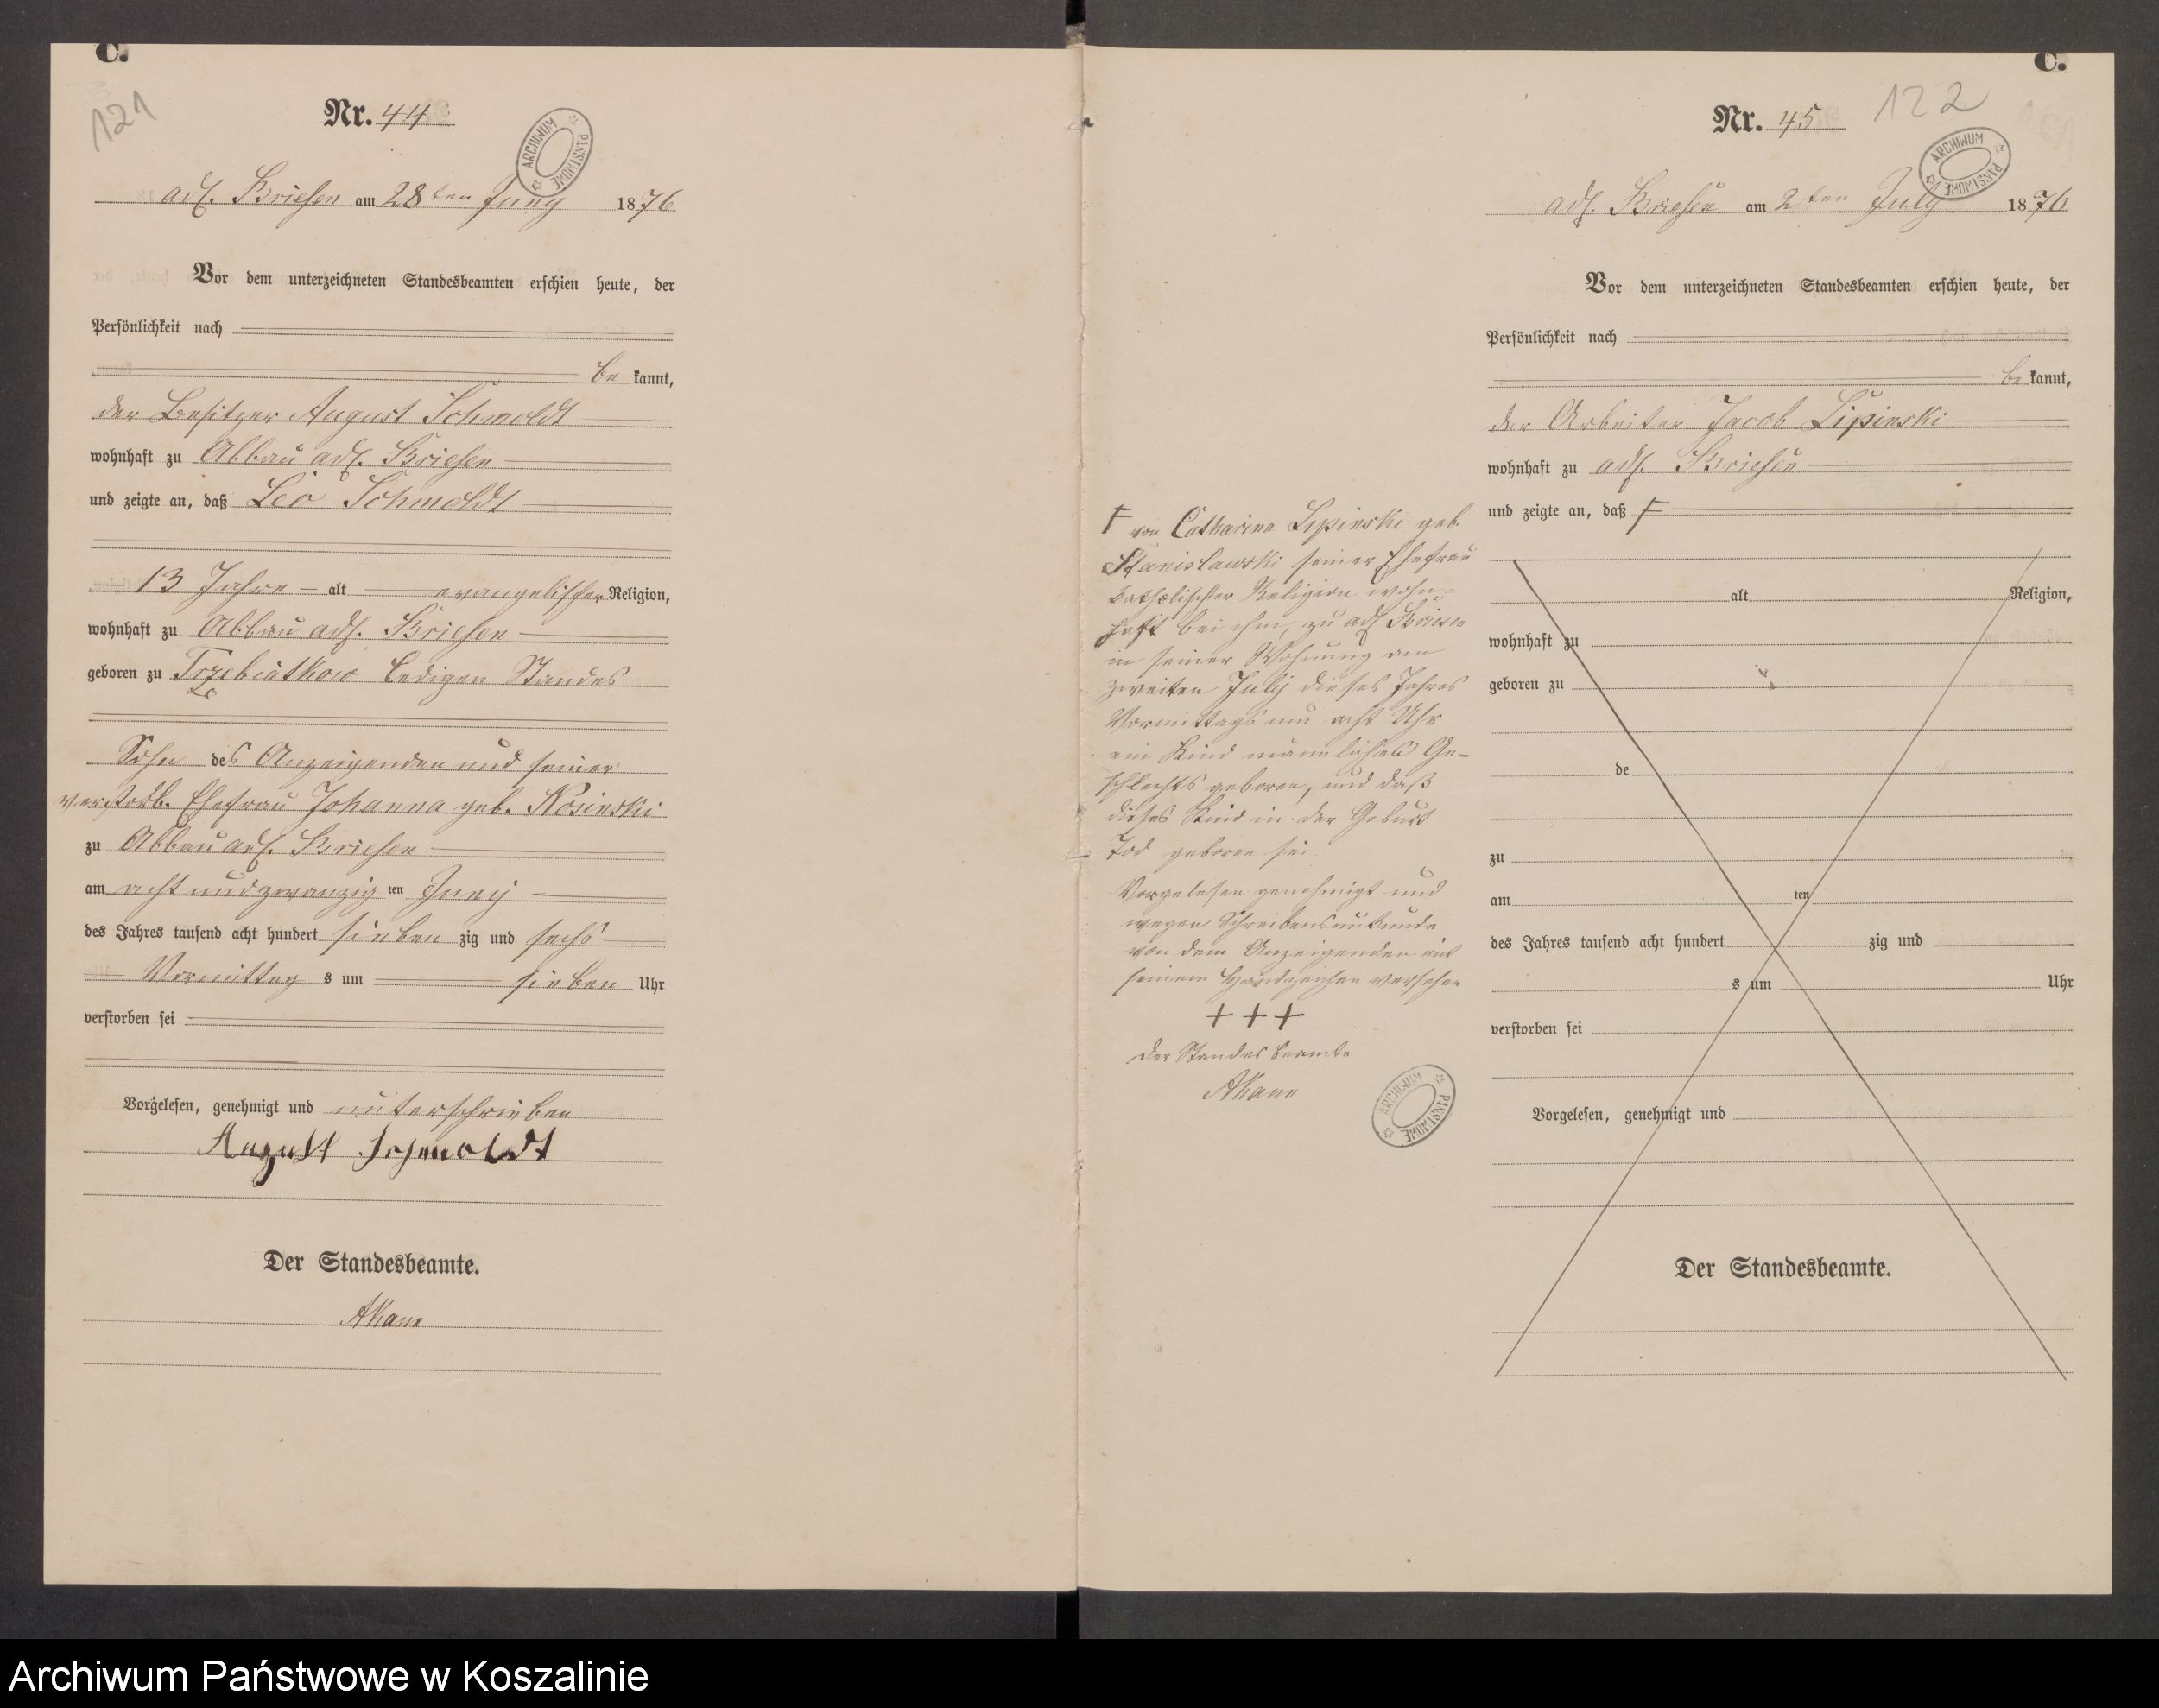 C.
121
Nr. 44
ARCHIWUM PAŃSTWOWE
adl. Briesen am 28ten Juny 1876
Vor dem unterzeichneten Standesbeamten erschien heute, der
Persönlichkeit nach
be kannt,
der Besitzer August Schmoldt
wohnhaft zu Abbau adl. Briesen
und zeigte an, daß Leo Schmoldt
13 Jahre alt evangelischer Religion,
wohnhaft zu Abbau adl. Briesen
geboren zu Trzebiatkow ledigen Standes
Sohn des Anzeigenden und seiner
verstorb. Ehefrau Johanna geb. Kosinski
zu Abbau adl. Briesen
am acht und zwanzig ten Juny
des Jahres tausend acht hundert sieben zig und sechs
Vormittag s um sieben Uhr
verstorben sei
Vorgelesen, genehmigt und unterschrieben
August Schmoldt
Der Standesbeamte.
C.
122
Nr. 45
ARCHIWUM PAŃSTWOWE
adl. Briesen am 2ten July 1876
Vor dem unterzeichneten Standesbeamten erschien heute, der
Persönlichkeit nach
be kannt,
der Arbeiter Jacob Lipinski
wohnhaft zu adl. Briesen
und zeigte an, daß F
F von Catharina Lipinski geb.
Stanislawski seiner Ehefrau
katholischer Religion wohn-
haft bei ihm, zu adl Briesen
in seiner Wohnung am
zweiten July dieses Jahres
Vormittags um acht Uhr
ein Kind männliches Ge-
schlechts geboren, und daß
dieses Kind in der Geburt
Tod geboren sei.
Vorgelesen genehmigt und
wegen Schreibensunkunde
von dem Anzeigenden mit
seinem Handzeichen versehen
+ + +
Der Standesbeamte
ARCHIWUM PAŃSTWOWE
alt Religion,
wohnhaft zu
geboren zu
de
zu
am ten
des Jahres tausend acht hundert zig und
s um Uhr
verstorben sei
Vorgelesen, genehmigt und
Der Standesbeamte.
Archiwum Państwowe w Koszalinie